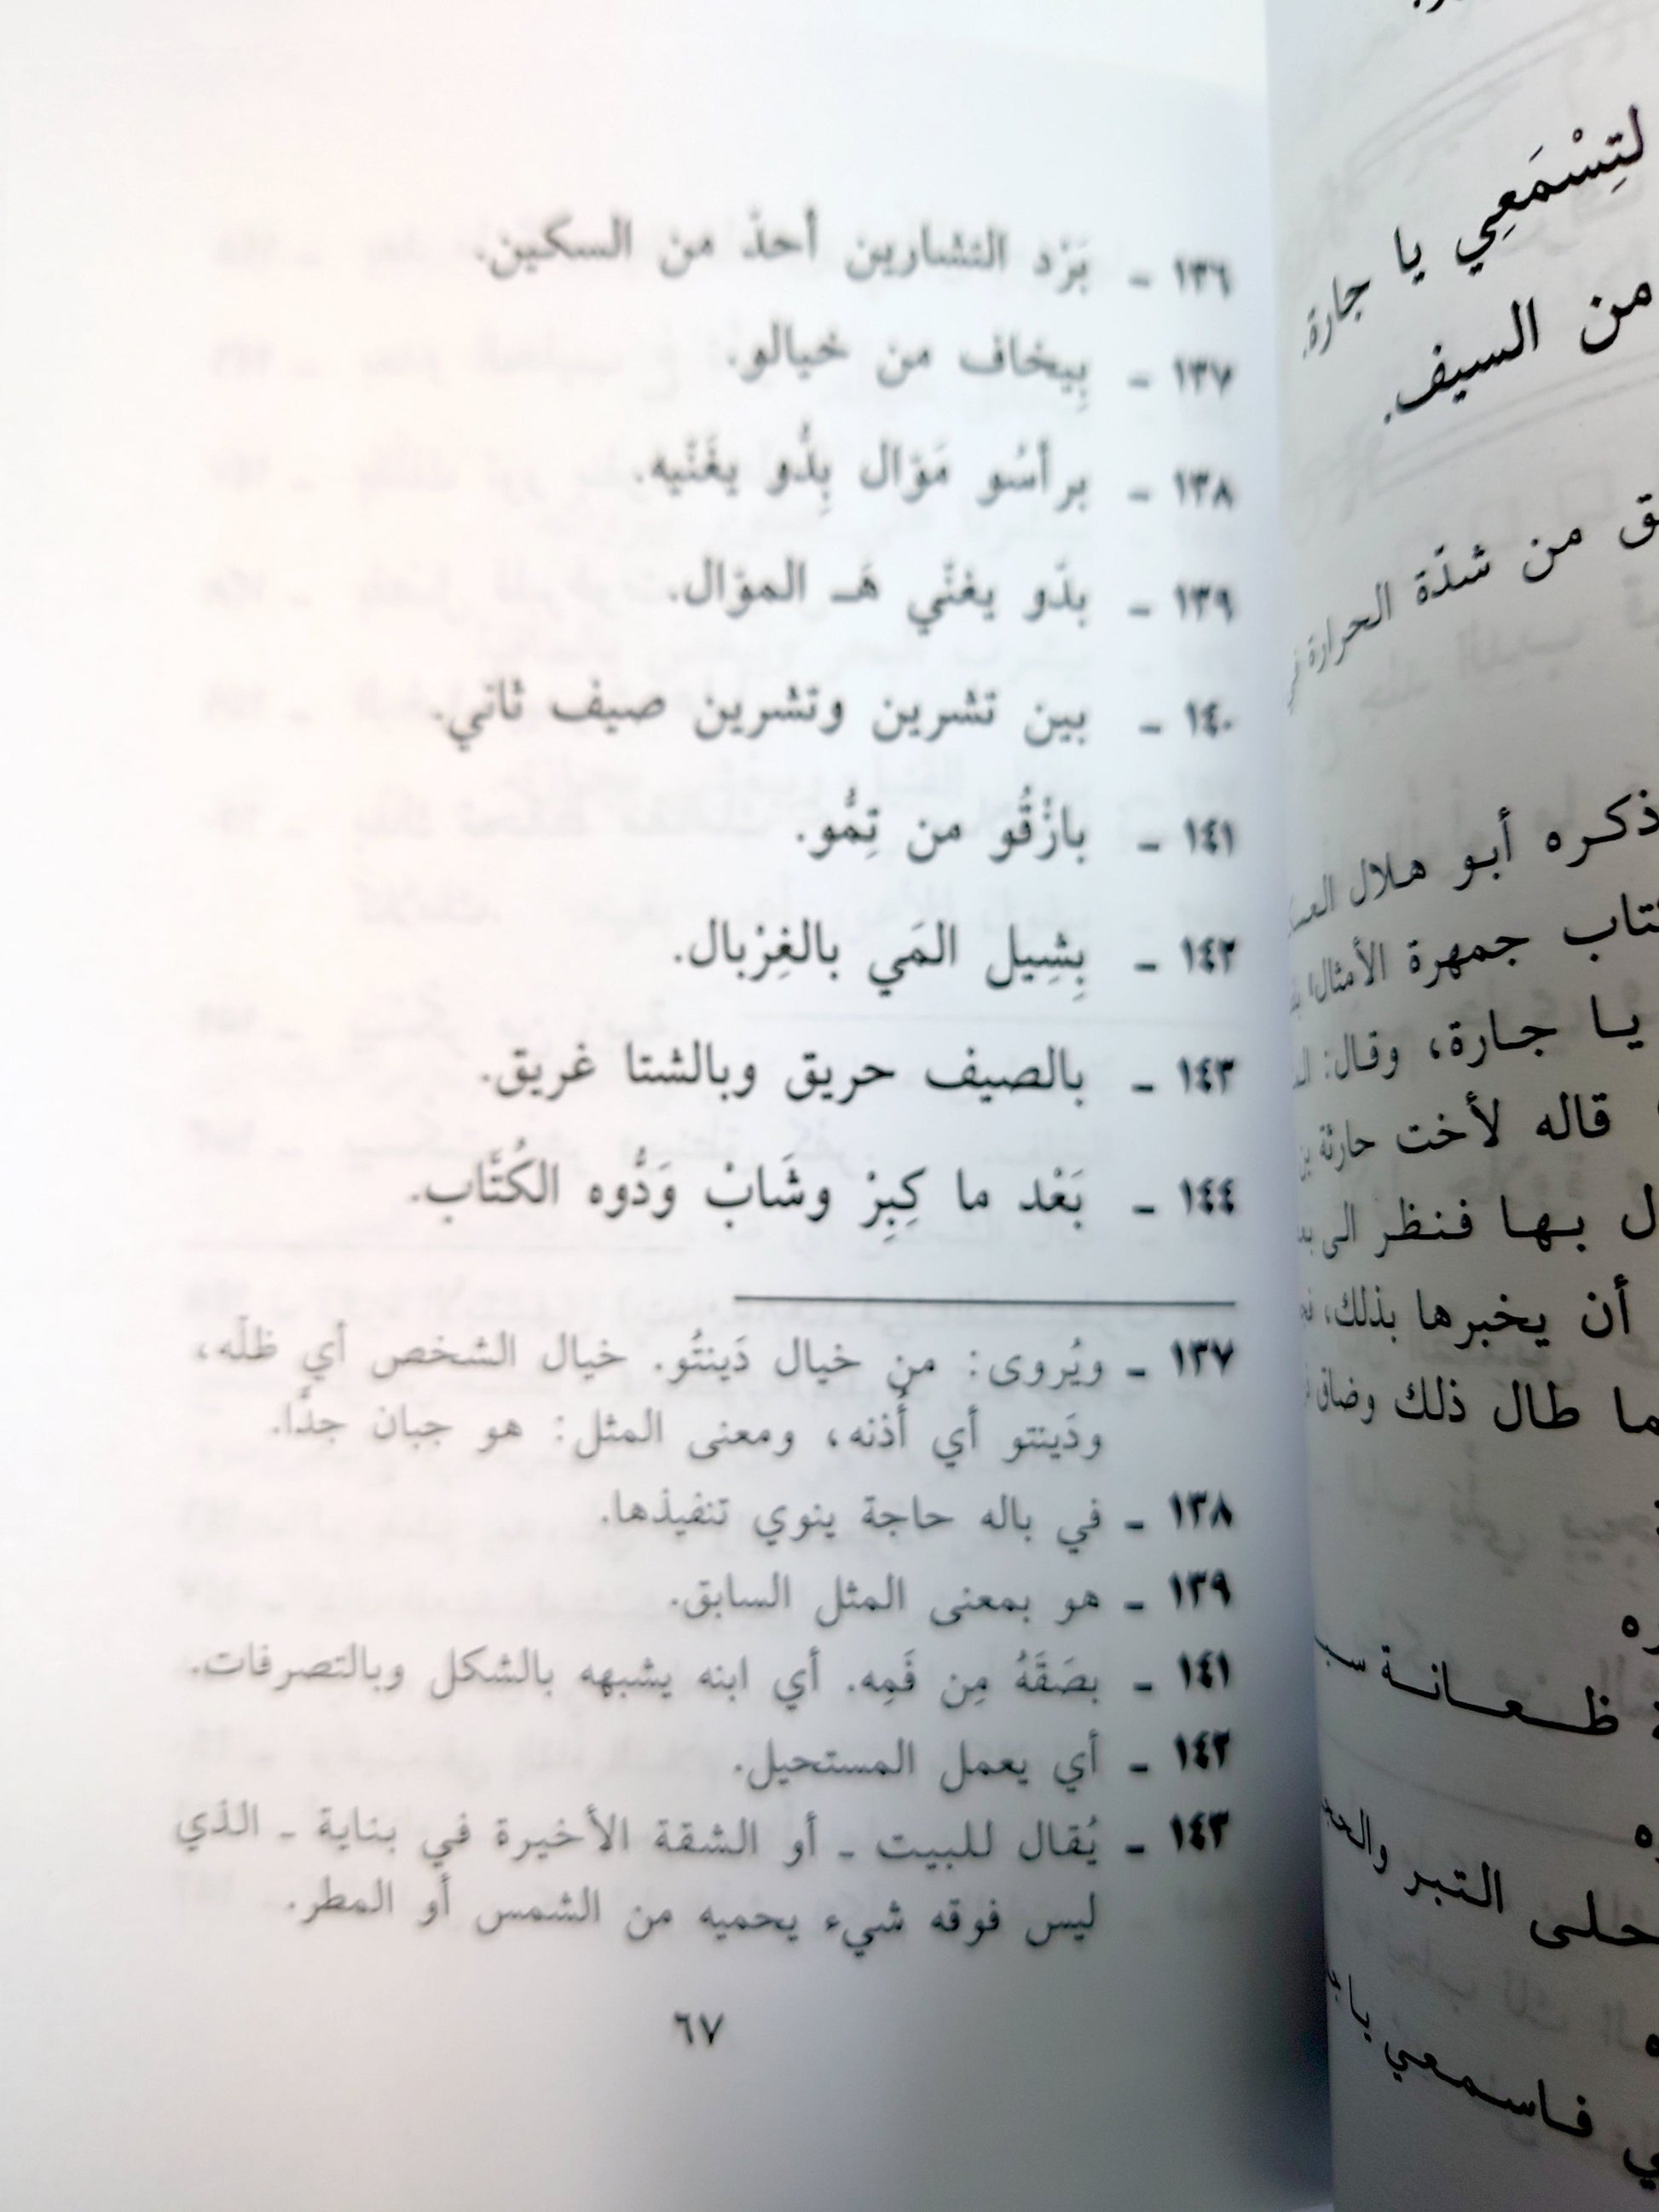 لتِسْمَعِي يا جارة.
من السيف.
من شدّة الحرارة في
ذكره أبو هلال
جمهرة الأمثال
يا جارة، وقال:
قاله لأخت حارثة بن
بها فنظر الى
أن يخبرها بذلك،
ما طال ذلك وضاق
ظعانة
التبر
فاسمعي يا
١٣٦ - بَرْد التشارين أحدّ من السكين.
١٣٧ - بِيخاف من خيالو.
١٣٨ - برأسُو مَوّال بِدُّو يغَنّيه.
١٣٩ - بدّو يغنّي هَـ الموّال.
١٤٠ - بين تشرين وتشرين صيف ثاني.
١٤١ - بازْقُو من تِمُّو.
١٤٢ - بِشِيل المَي بالغِرْبال.
١٤٣ - بالصيف حريق وبالشتا غريق.
١٤٤ - بَعْد ما كِبِرْ وشَابْ وَدُّوه الكُتَّاب.
١٣٧ - ويُروى: من خيال دَينتُو. خيال الشخص أي ظلّه،
ودَينتو أي أُذنه، ومعنى المثل: هو جبان جدًّا.
١٣٨ - في باله حاجة ينوي تنفيذها.
١٣٩ - هو بمعنى المثل السابق.
١٤١ - بصَقَهُ مِن فَمِه. أي ابنه يشبهه بالشكل وبالتصرفات.
١٤٢ - أي يعمل المستحيل.
١٤٣ - يُقال للبيت - أو الشقة الأخيرة في بناية - الذي
ليس فوقه شيء يحميه من الشمس أو المطر.
٦٧